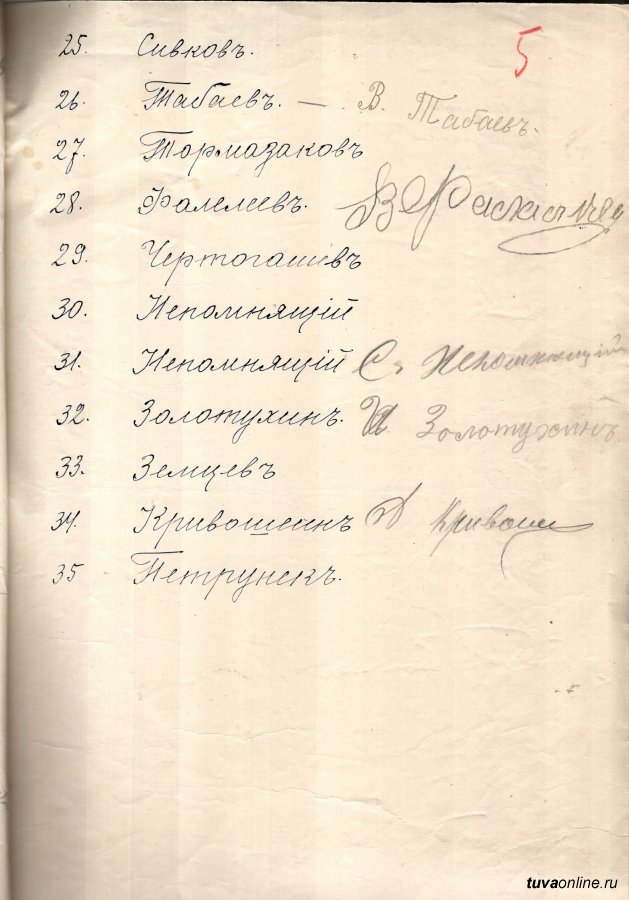 5
25. Сивковъ.
26. Табаевъ. — В. Табаевъ.
27. Тормазаковъ
28. Фалелеевъ.
29. Чертогашевъ
30. Непомнящій
31. Непомнящій С. Непомнящій
32. Золотухинъ. И. Золотухинъ
33. Земцевъ
34. Кривошеинъ
35 Петрунскъ.
tuvaonline.ru